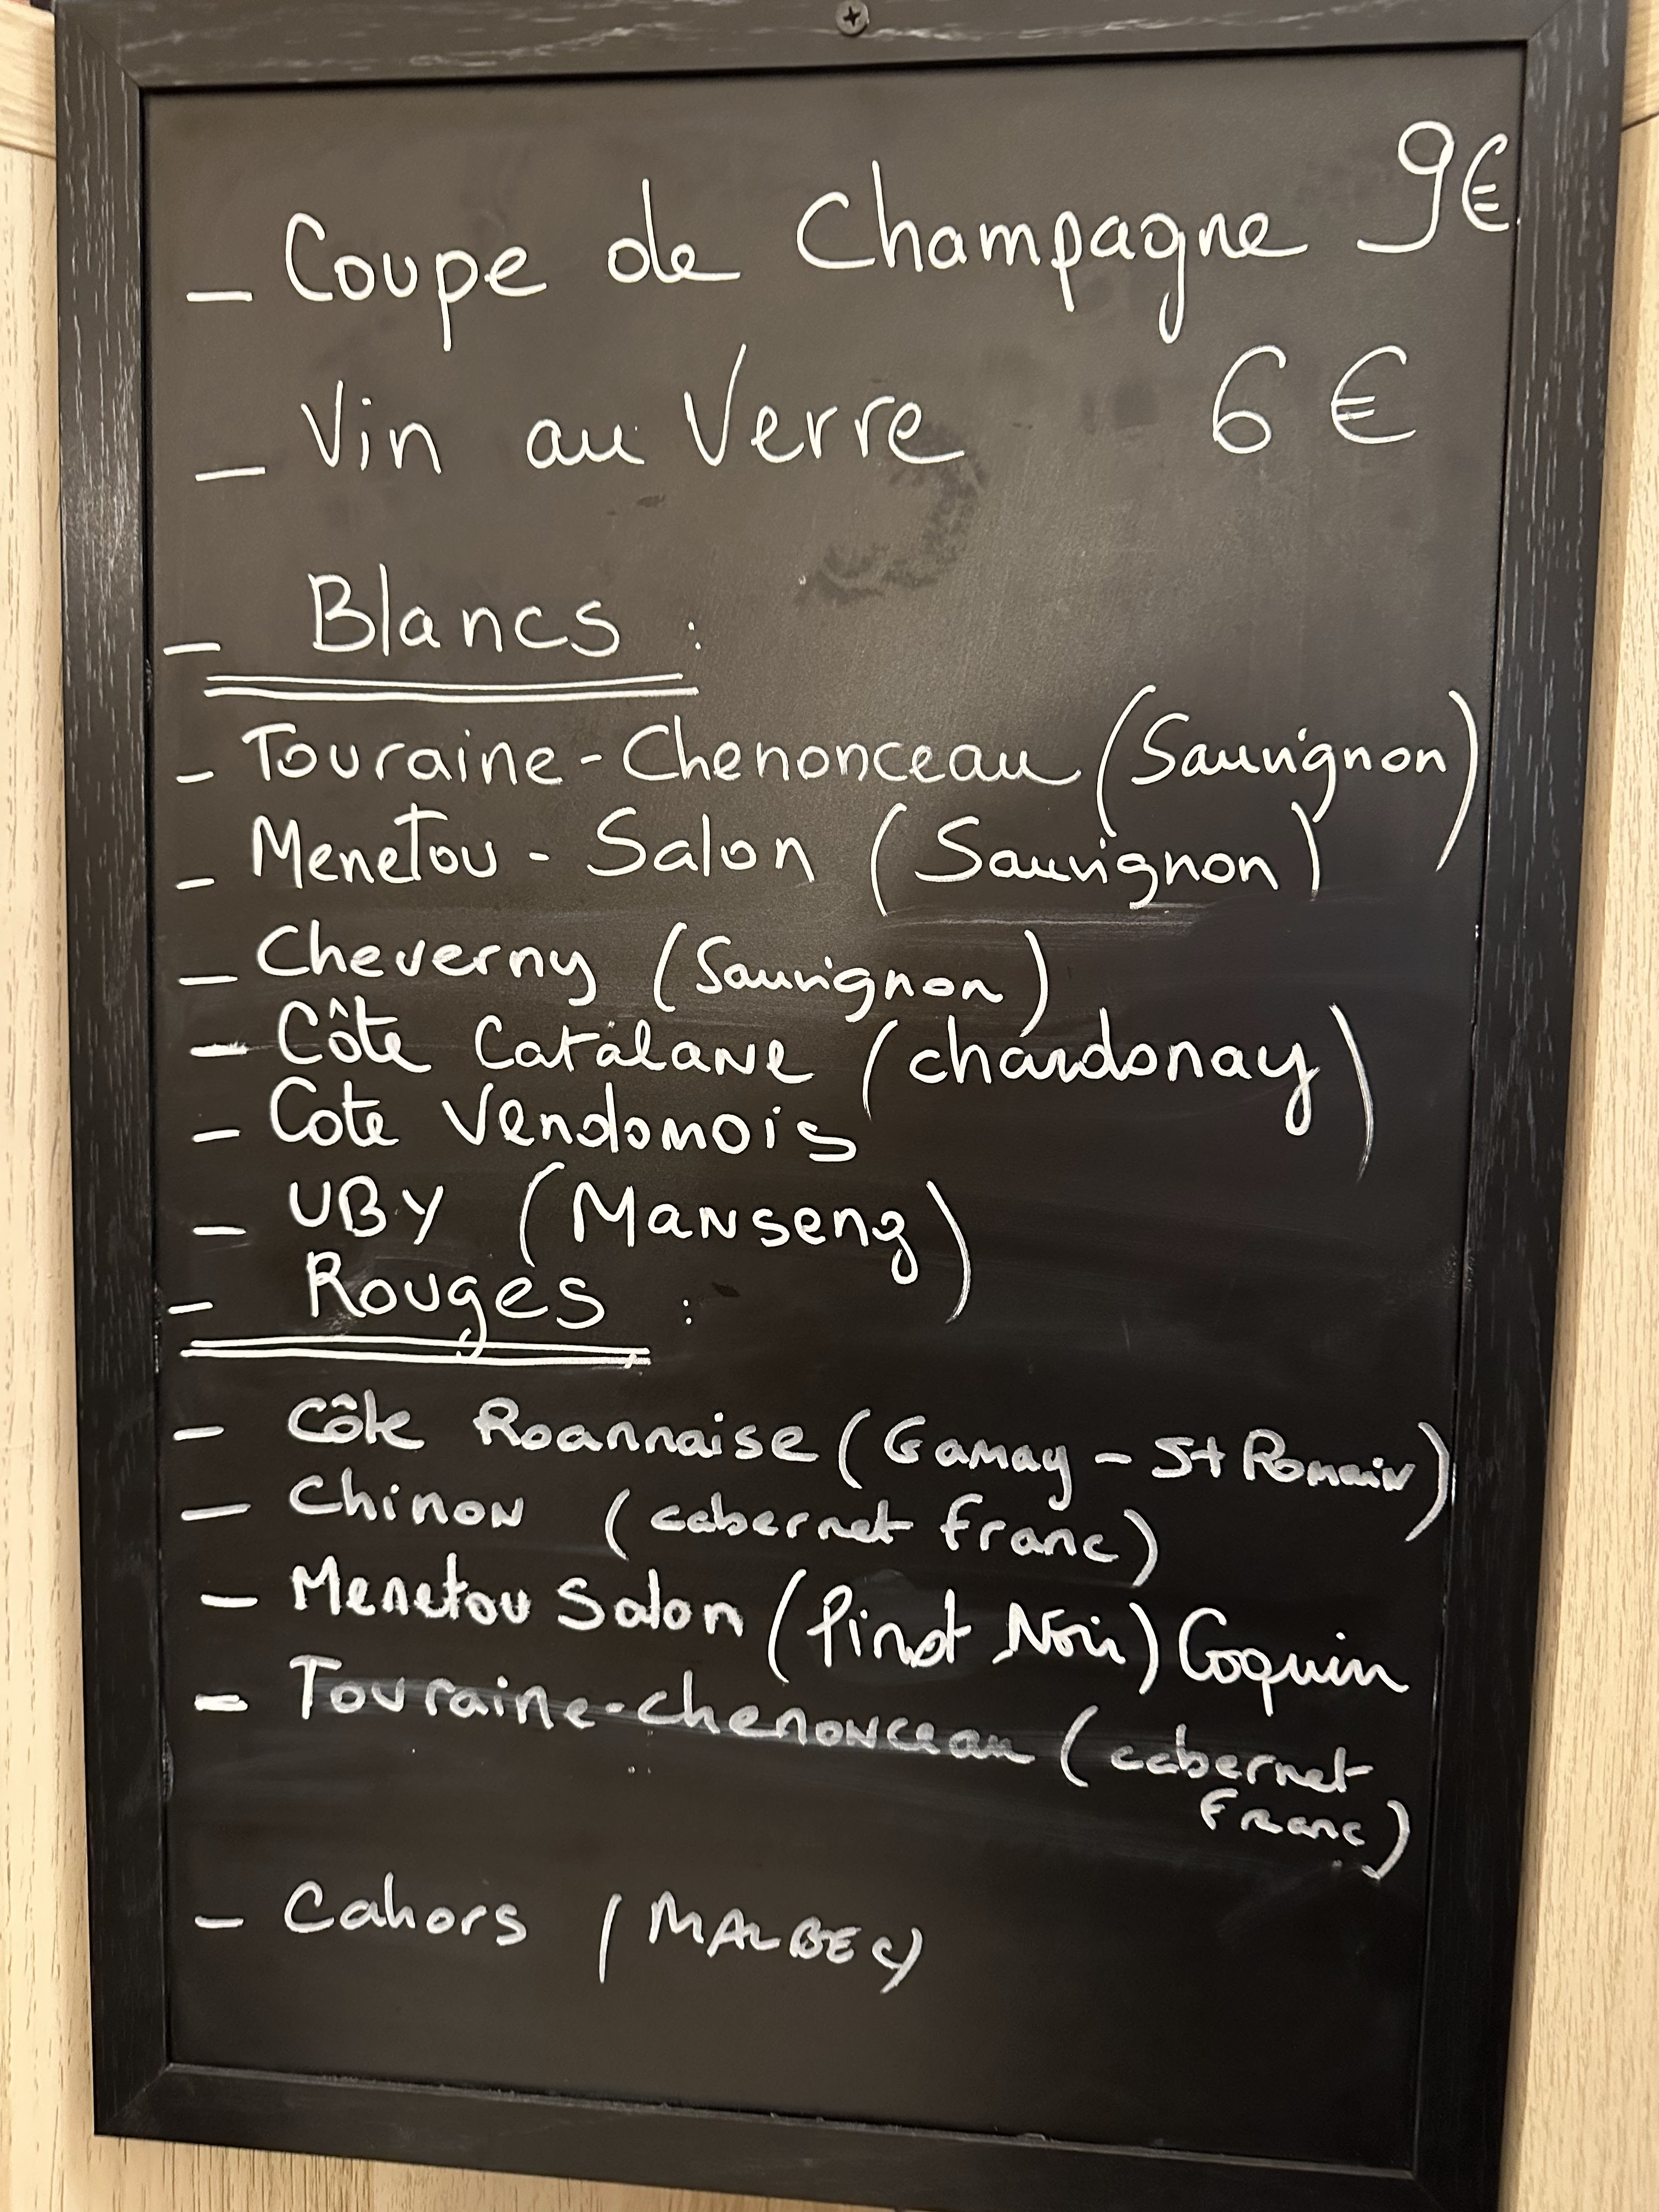 - Coupe de Champagne 9€
- Vin au Verre 6 €
- Blancs :
- Touraine-Chenonceau (Sauvignon)
- Menetou - Salon (Sauvignon)
- Cheverny (Sauvignon)
- Côte Catalane (chardonay)
- Cote Vendomois
- UBY (Manseng)
- Rouges :
- Côte Roannaise (Gamay - St Romain)
- Chinon (cabernet franc)
- Menetou Salon (Pinot Noir) Coquin
- Touraine-chenonceau (cabernet
franc)
- Cahors (MALBEC)